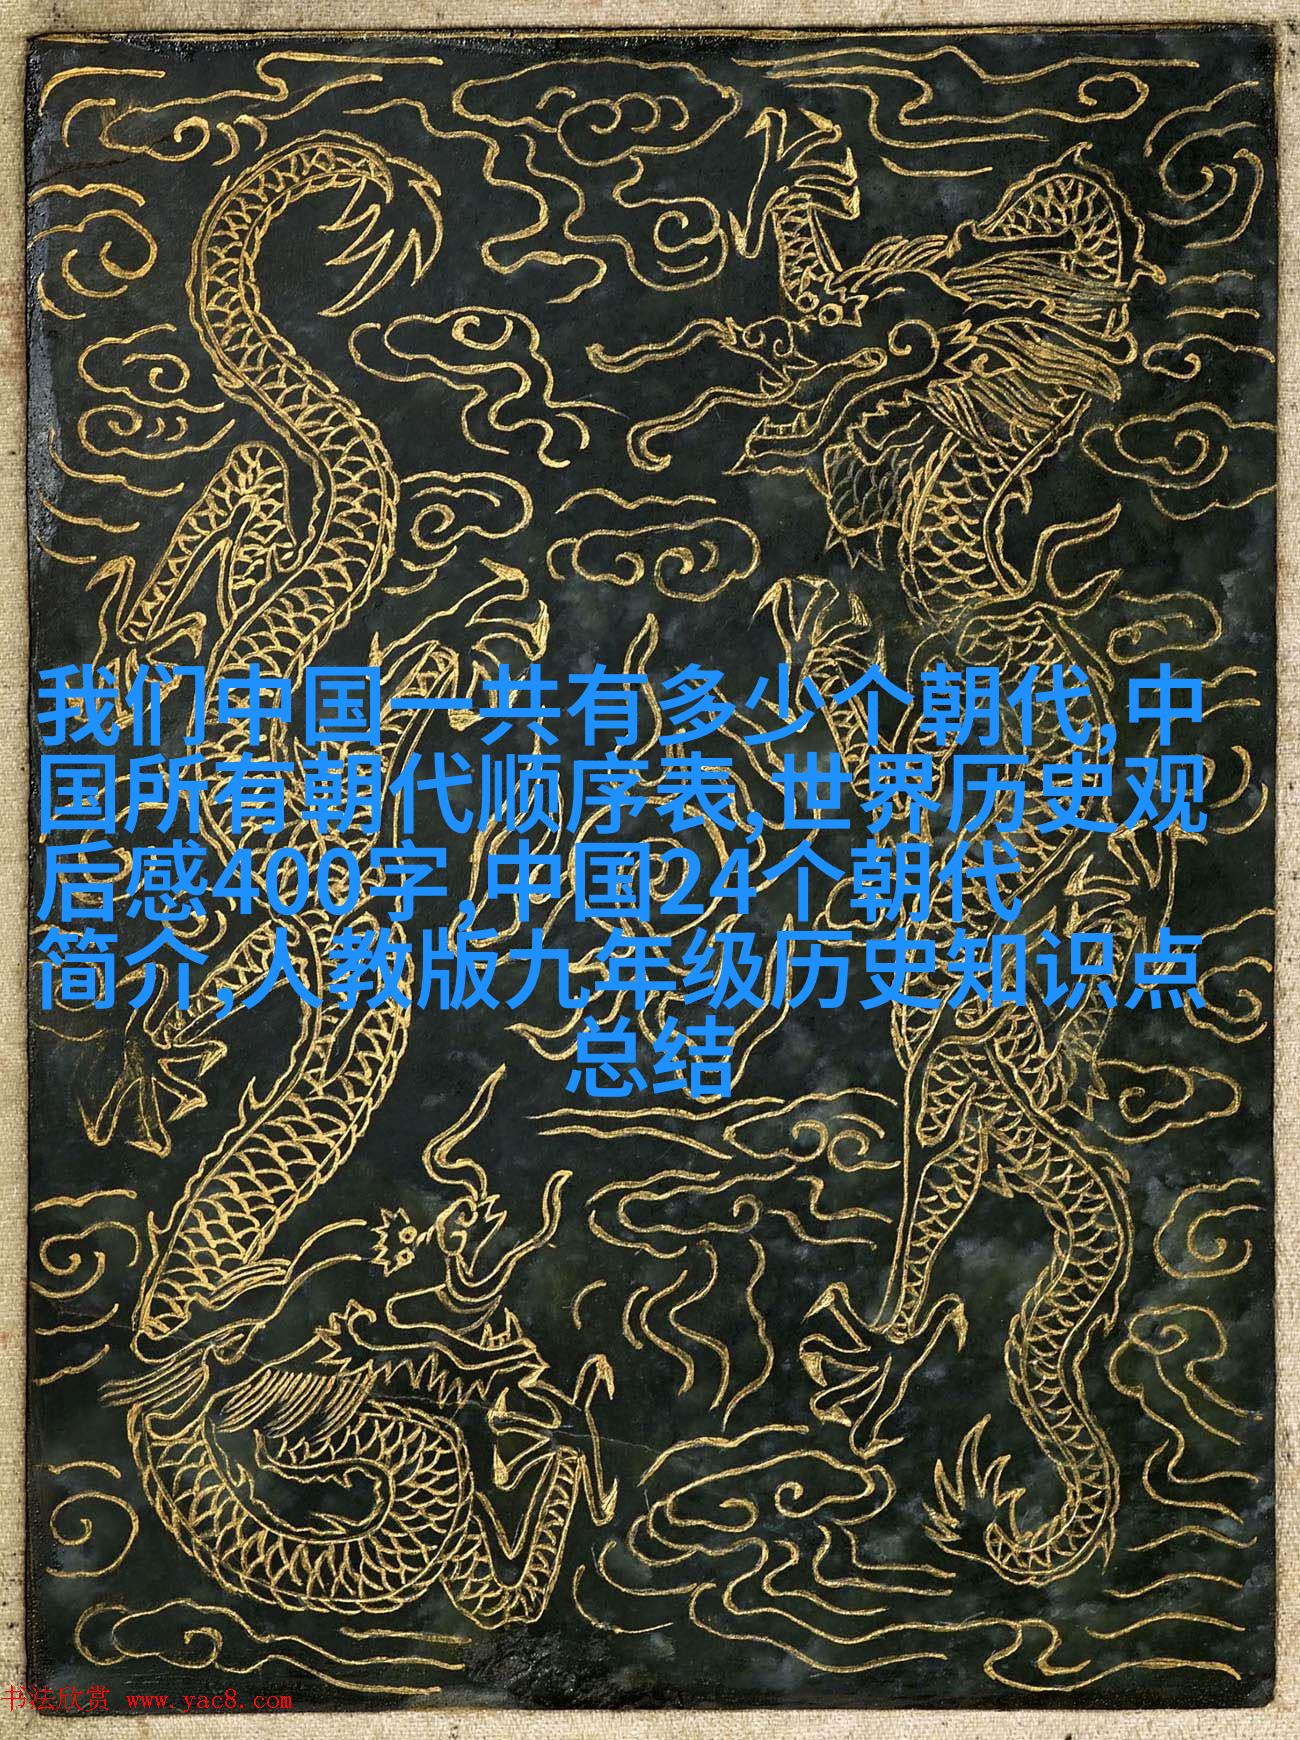 我们中国一共有多少个朝代,中
国所有朝代顺序表,世界历史观
后感400字,中国24个朝代
简介,人教版九年级历史知识点
总结
书法欣赏 www.yac8.com